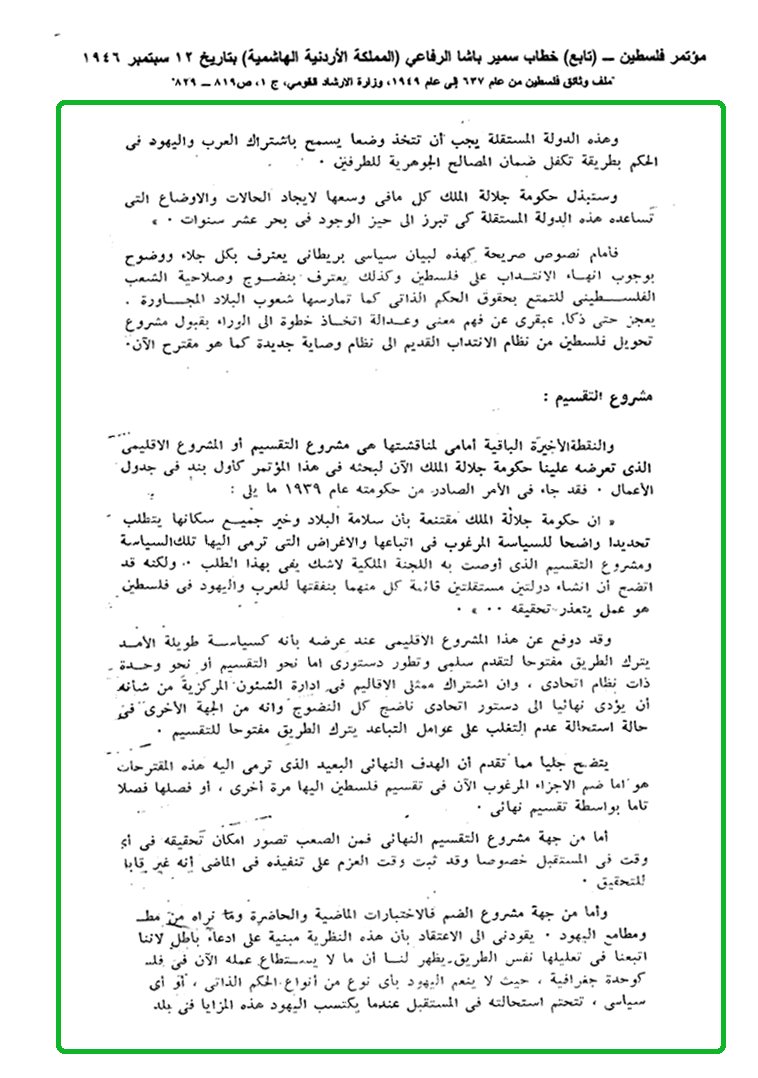 مؤتمر فلسطين ــ (تابع) خطاب سمير باشا الرفاعي (المملكة الأردنية الهاشمية) بتاريخ ١٢ سبتمبر ١٩٤٦
"ملف وثائق فلسطين من عام ٦٣٧ إلى عام ١٩٤٩، وزارة الارشاد القومي، ج ١، ص٨١٩ ــ ٨٢٩"
وهذه الدولة المستقلة يجب أن تتخذ وضعا يسمح باشتراك العرب واليهود فى
الحكم بطريقة تكفل ضمان المصالح الجوهرية للطرفين ٠
وستبذل حكومة جلالة الملك كل مافى وسعها لايجاد الحالات والاوضاع التى
تساعده هذه الدولة المستقلة كى تبرز الى حيز الوجود فى بحر عشر سنوات ٠ »
فأمام نصوص صريحة كهذه لبيان سياسى بريطانى يعترف بكل جلاء ووضوح
بوجوب انهاء الانتداب على فلسطين وكذلك يعترف بنضوج وصلاحية الشعب
الفلسطينى للتمتع بحقوق الحكم الذاتى كما تمارسها شعوب البلاد المجاورة ٠
يعجز حتى ذكاء عبقرى عن فهم معنى وعدالة اتخاذ خطوة الى الوراء بقبول مشروع
تحويل فلسطين من نظام الانتداب القديم الى نظام وصاية جديدة كما هو مقترح الآن٠
مشروع التقسيم :
والنقطة الأخيرة الباقية أمامى لمناقشتها هى مشروع التقسيم أو المشروع الاقليمى
الذى تعرضه علينا حكومة جلالة الملك الآن لبحثه فى هذا المؤتمر كأول بند فى جدول
الأعمال ٠ فقد جاء فى الأمر الصادر من حكومته عام ١٩٣٩ ما يلى :
« ان حكومة جلالة الملك مقتنعة بأن سلامة البلاد وخير جميع سكانها يتطلب
تحديدا واضحا للسياسة المرغوب فى اتباعها والاغراض التى ترمى اليها تلك السياسة
ومشروع التقسيم الذى أوصت به اللجنة الملكية لاشك يفى بهذا الطلب ٠ ولكنه قد
اتضح أن انشاء دولتين مستقلتين قائمة كل منهما بنفقتها للعرب واليهود فى فلسطين
هو عمل يتعذر تحقيقه ٠٠ » ٠
وقد دوفع عن هذا المشروع الاقليمى عند عرضه بانه كسياسة طويلة الأمد
يترك الطريق مفتوحا لتقدم سلمى وتطور دستورى اما نحو التقسيم أو نحو وحدة
ذات نظام اتحادى ، وان اشتراك ممثلى الاقاليم فى ادارة الشئون المركزية من شأنه
أن يؤدى نهائيا الى دستور اتحادى ناضج كل النضوج وانه من الجهة الأخرى فى
حالة استحالة عدم التغلب على عوامل التباعد يترك الطريق مفتوحا للتقسيم ٠
يتضح جليا مما تقدم أن الهدف النهائى البعيد الذى ترمى اليه هذه المقترحات
هو اما ضم الاجزاء المرغوب الآن فى تقسيم فلسطين اليها مرة أخرى ، أو فصلها فصلا
تاما بواسطة تقسيم نهائى ٠
أما من جهة مشروع التقسيم النهائى فمن الصعب تصور امكان تحقيقه فى أى
وقت فى المستقبل خصوصا وقد ثبت وقت العزم على تنفيذه فى الماضى إنه غير قابل
للتحقيق ٠
وأما من جهة مشروع الضم فالاختبارات الماضية والحاضرة وما نراه من مطـ
ومطامع اليهود ٠ يقودنى الى الاعتقاد بأن هذه النظرية مبنية على ادعاء باطل لاننا
اتبعنا فى تعليلها نفس الطريق يظهر لنا أن ما لا يستطاع عمله الآن فى فلـ
كوحدة جغرافية ، حيث لا ينعم اليهود بأى نوع من أنواع الحكم الذاتى ، أو أى
سياسى ، تتحتم استحالته فى المستقبل عندما يكتسب اليهود هذه المزايا فى بلد